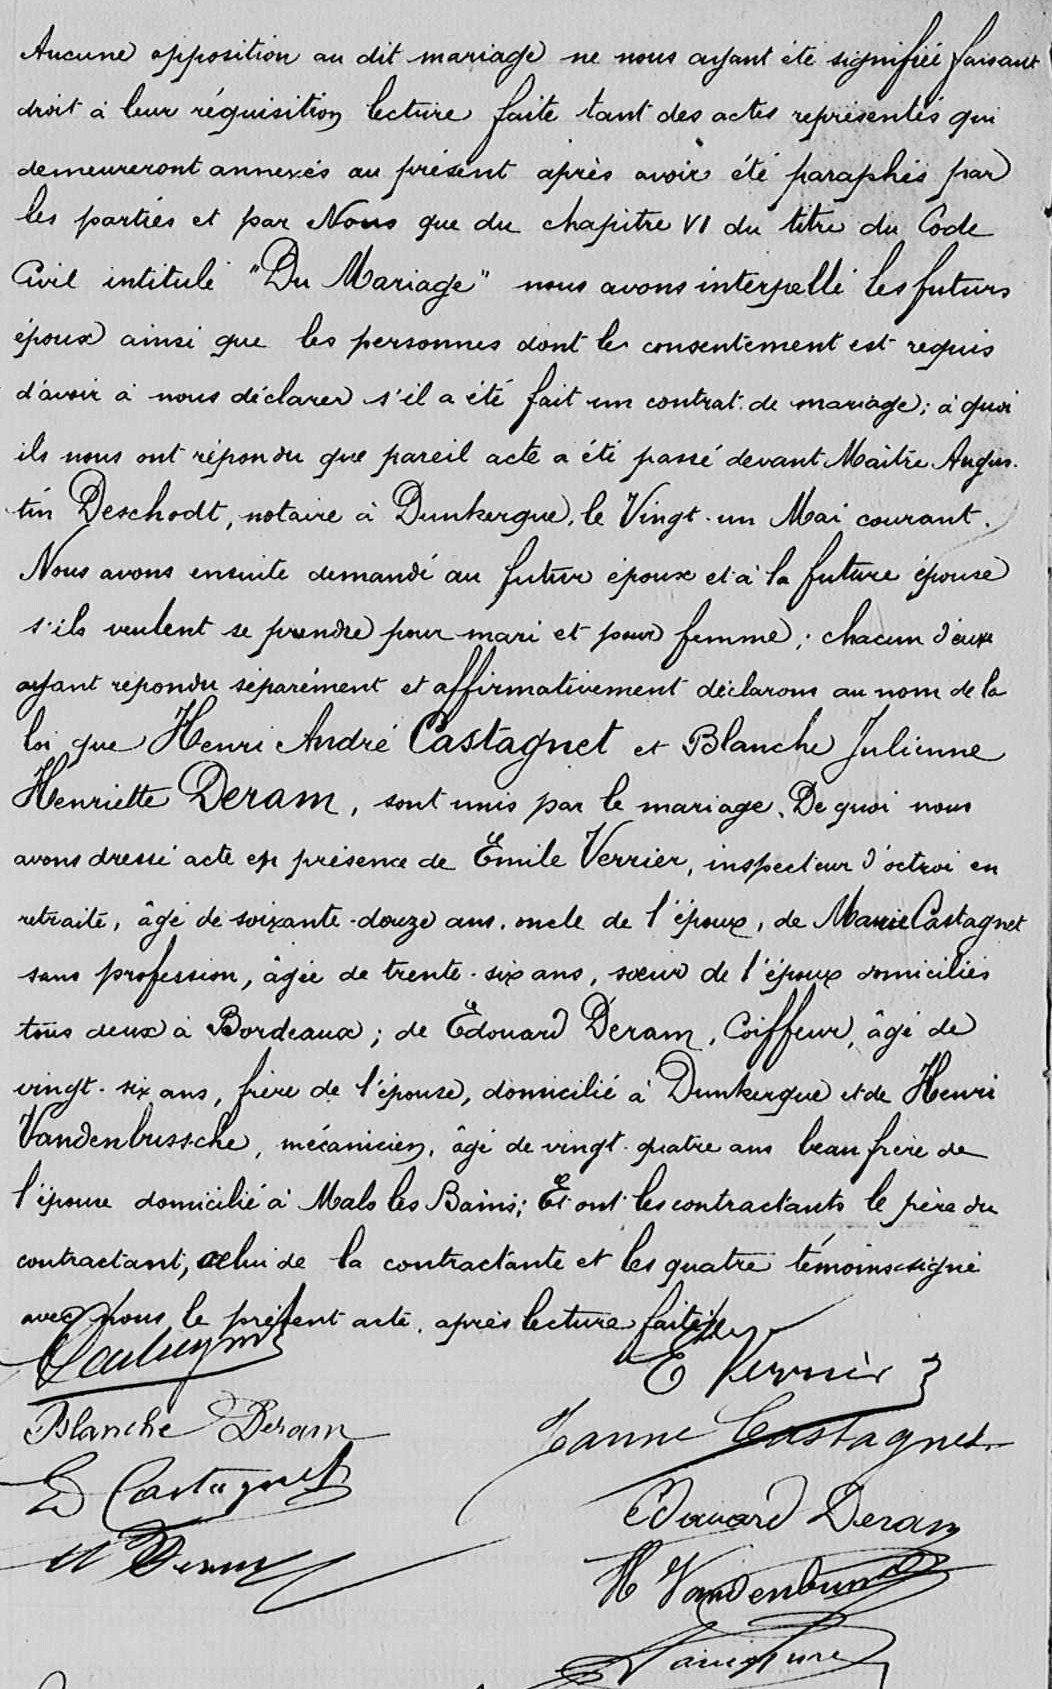 Aucune opposition au dit mariage ne nous ayant été signifiée faisant
droit à leur réquisition lecture faite tant des actes représentés qui
demeureront annexés au présent après avoir été paraphés par
les parties et par Nous que du chapitre VI du titre du Code
Civil intitulé "Du Mariage" nous avons interpellé les futurs
époux ainsi que les personnes dont le consentement est requis
d'avoir à nous déclarer s'il a été fait un contrat de mariage; à quoi
ils nous ont répondu que pareil acte a été passé devant Maître Augus-
tin Deschodt, notaire à Dunkerque, le Vingt-un Mai courant.
Nous avons ensuite demandé au futur époux et à la future épouse
s'ils veulent se prendre pour mari et pour femme; chacun d'eux
ayant répondu séparément et affirmativement déclarons au nom de la
loi que Henri André Castagnet et Blanche Julienne
Henriette Deram, sont unis par le mariage. De quoi nous
avons dressé acte en présence de Emile Verrier, inspecteur d'octroi en
retraite, âgé de soixante-douze ans, oncle de l'époux, de Marie Castagnet
sans profession, âgée de trente-six ans, sœur de l'époux domiciliés
tous deux à Bordeaux; de Edouard Deram, Coiffeur, âgé de
vingt-six ans, frère de l'épouse, domicilié à Dunkerque et de Henri
Vandenbussche, mécanicien, âgé de vingt-quatre ans beau frère de
l'épouse domicilié à Malo les Bains; Et ont les contractants le père du
contractant, celui de la contractante et les quatre témoins signé
avec Nous le présent acte, après lecture faite
E Verrier
Blanche Deram
Jeanne Castagnet
Castagnet
Edouard Deram
H Deram
H Vandenbussche